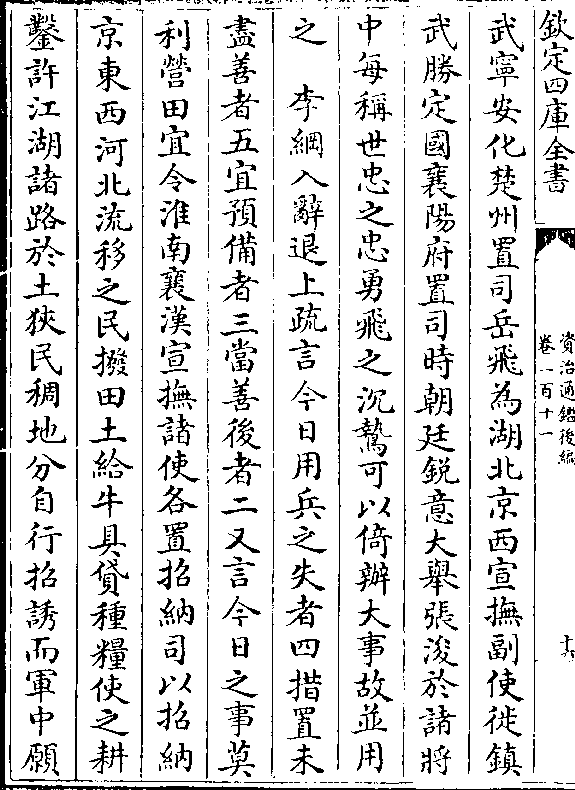 欽定四庫全書
資治通鑑後編
卷一百十一
十六
武寧安化楚州置司岳飛為湖北京西宣撫副使徙鎮
武勝定國襄陽府置司時朝廷鋭意大舉張浚於諸將
中每稱世忠之忠勇飛之沉鷙可以倚辦大事故並用
之　李綱入辭退上疏言今日用兵之失者四措置未
盡善者五宜預備者三當善後者二又言今日之事莫
利營田宜令淮南襄漢宣撫諸使各置招納司以招納
京東西河北流移之民撥田土給牛具貸種糧使之耕
鑿許江湖諸路於土狹民稠地分自行招誘而軍中願